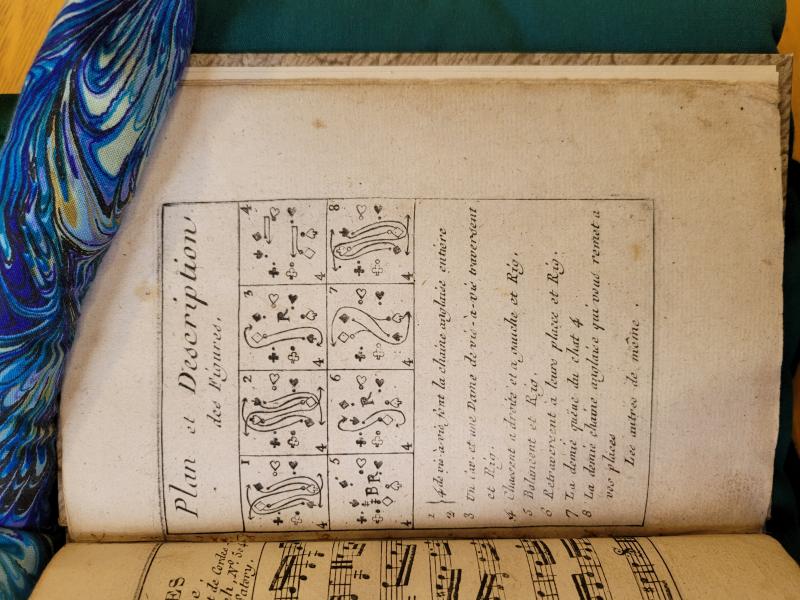 Plan et Description
des Figures.
1 2 3 4
4 4 4 4
R
5 6 7 8
BR R
4 4 4 4
1
2 } 4 de vis-à-vis font la chaine anglaise entière
3 Un Cav. et une Dame de vis-a-vis traversent
et Rig.
4 Chassent a droite et a gauche et Rig.
5 Balancent et Rig.
6 Retraversent à leurs places et Rig.
7 La demie queue du chat 4
8 La demie chaine anglaise qui vous remet a
vos places
Les autres de même.
ES
t de Cordes